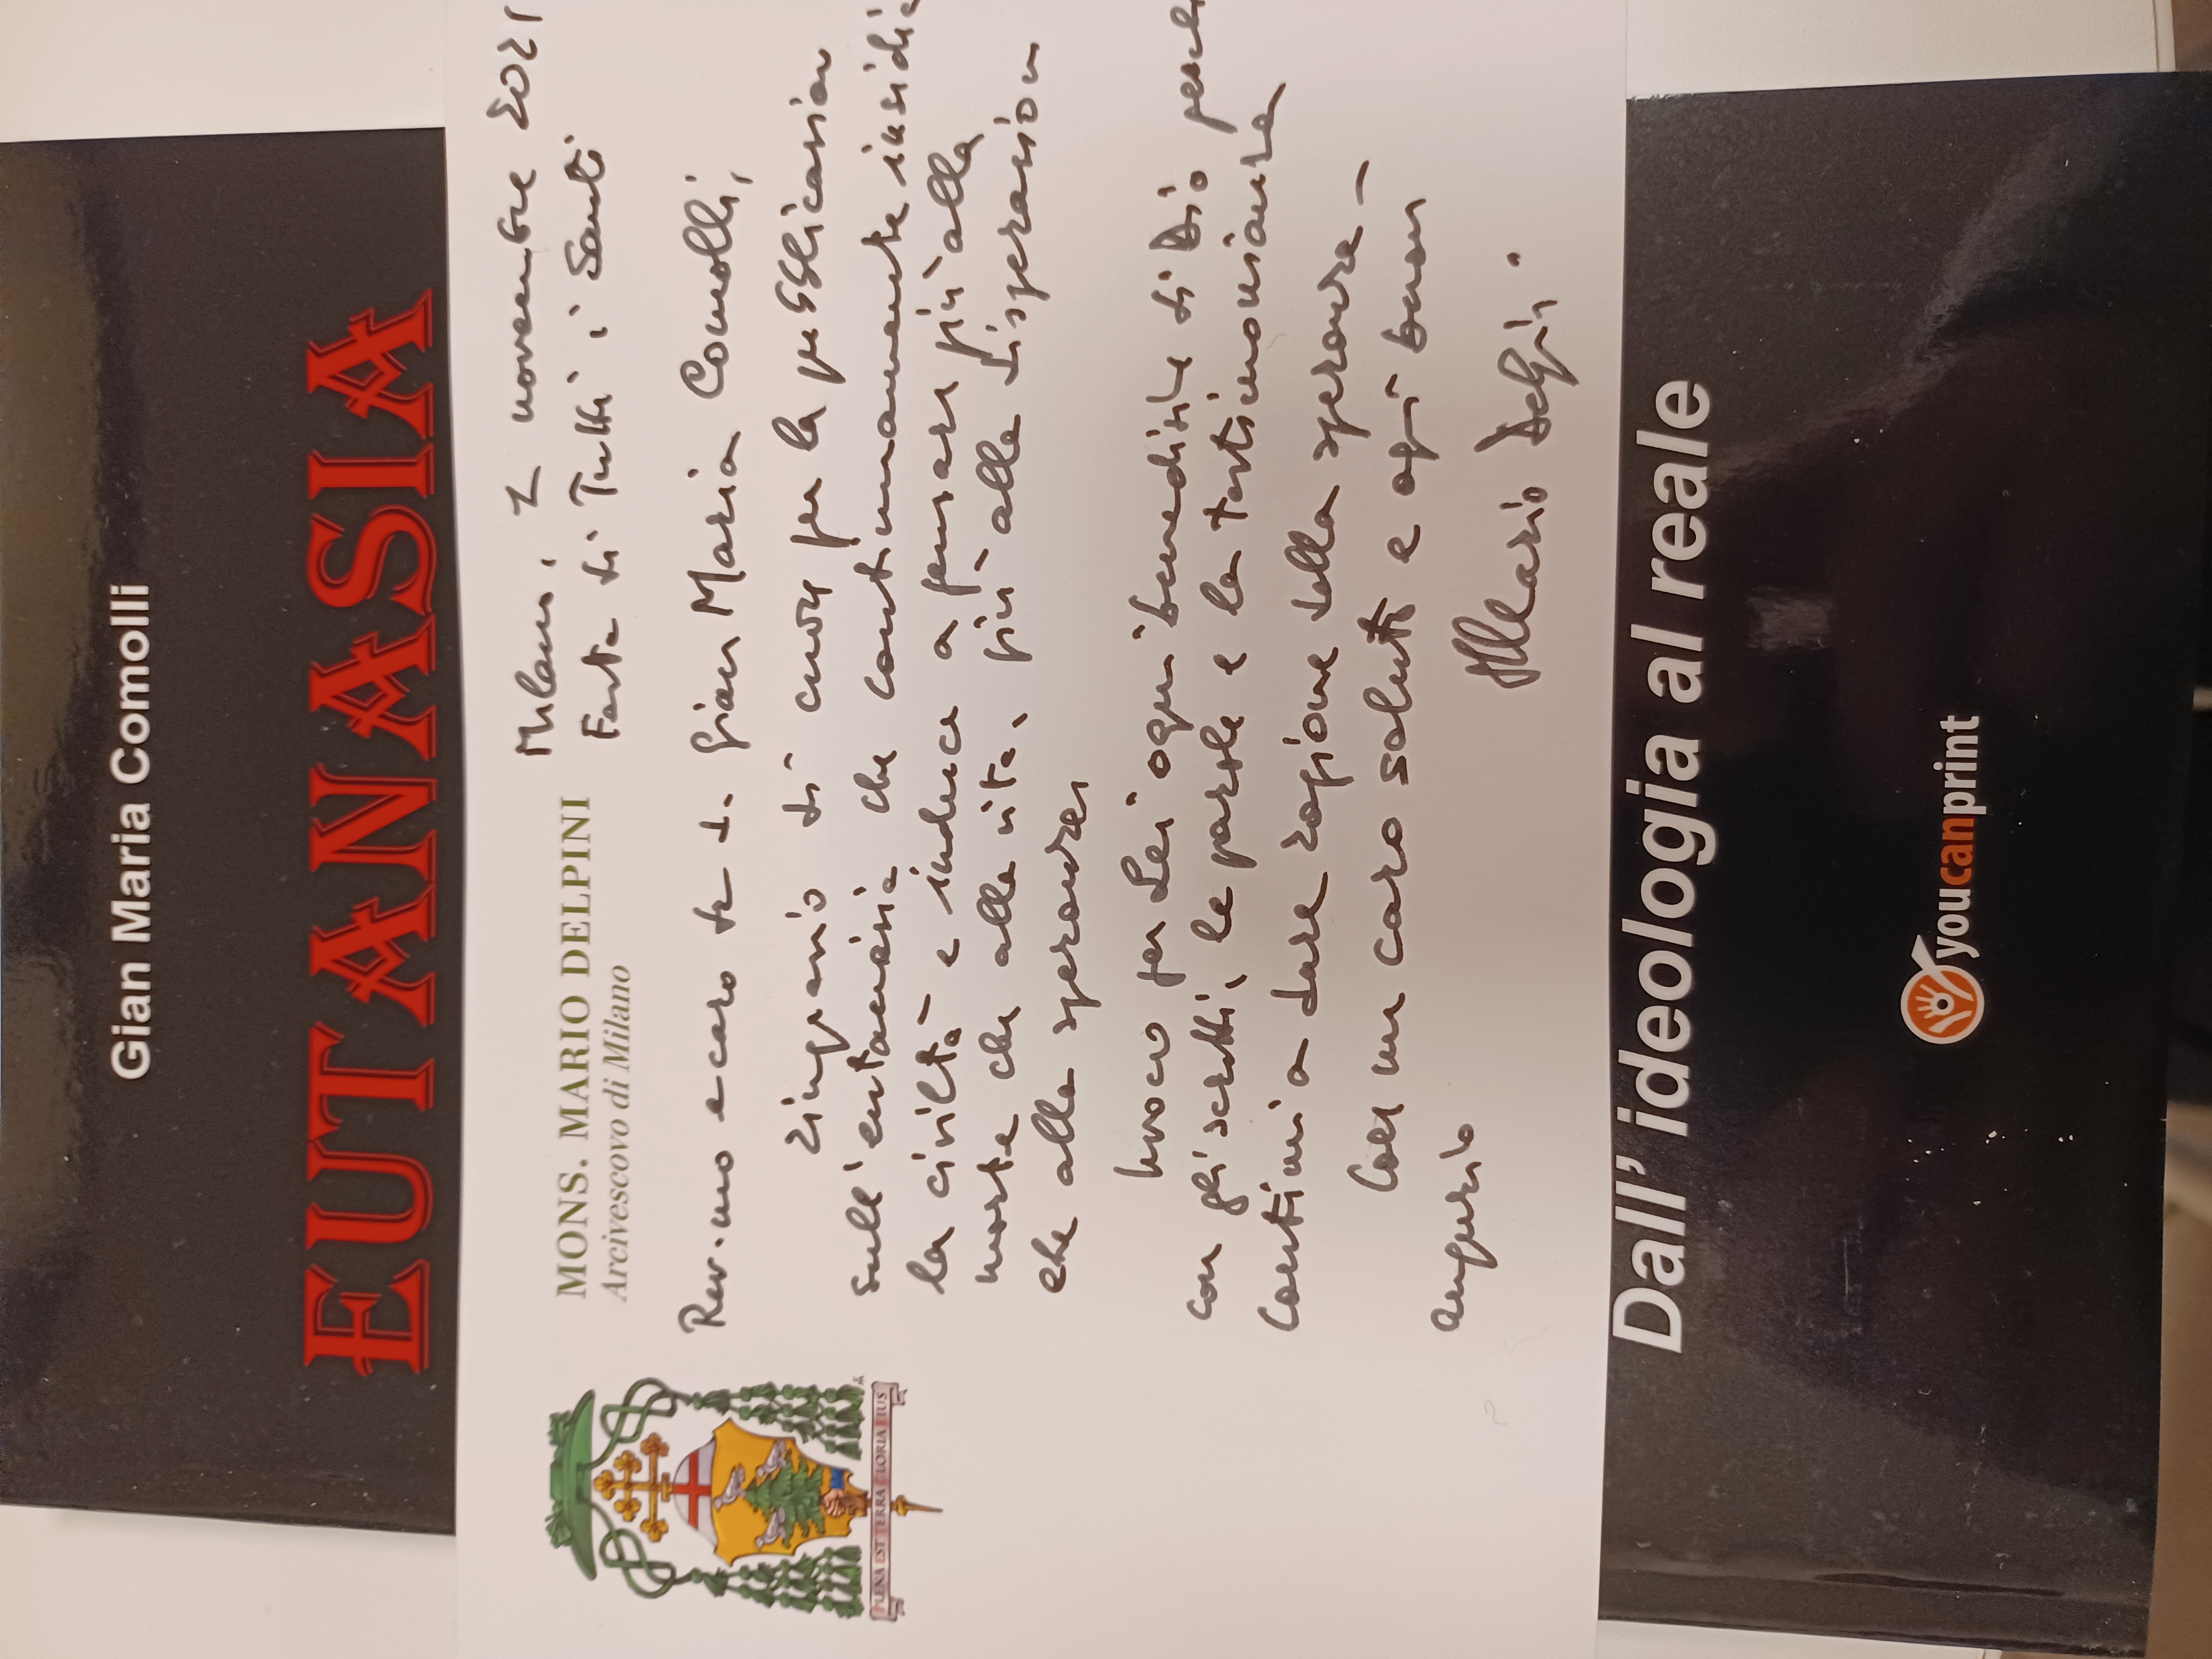 Gian Maria Comolli
EUTANASIA
MONS. MARIO DELPINI
Arcivescovo di Milano
Milano, 1 novembre 2021
Festa di Tutti i Santi
Rev.mo e caro d. Gian Maria Comolli,
ringrazio di cuore per la pubblicazion
sull'eutanasia che continuamente insidia
la civiltà e induce a pensare più alla
morte che alla vita, più alla disperazion
che alla speranza
Invoco per Lei ogni benedizione di Dio perché
con gli scritti, le parole e la testimonianza
continui a dare ragione della speranza -
Con un caro saluto e ogni buon
augurio
+ Mario Delpini
PLENA EST TERRA GLORIA EIUS
Dall' ideologia al reale
youcanprint